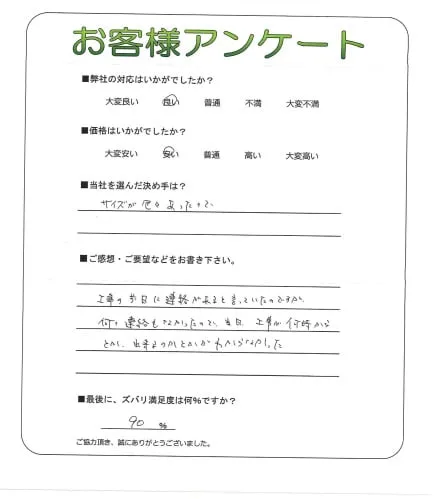 お客様アンケート
■弊社の対応はいかがでしたか?
大変良い 良い 普通 不満 大変不満
■価格はいかがでしたか?
大変安い 安い 普通 高い 大変高い
■当社を選んだ決め手は?
サイズが色々あったので
■ご感想・ご要望などをお書き下さい。
工事の前日に連絡があると言っていたのですが、
何も連絡もなかったので、当日、工事が何時から
とか、出来るのかとかがわからなかった
■最後に、ズバリ満足度は何%ですか?
90 %
ご協力頂き、誠にありがとうございました。